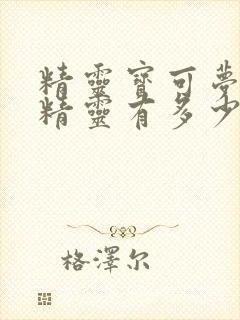 精靈寶可夢
精靈有多少
格澤尔